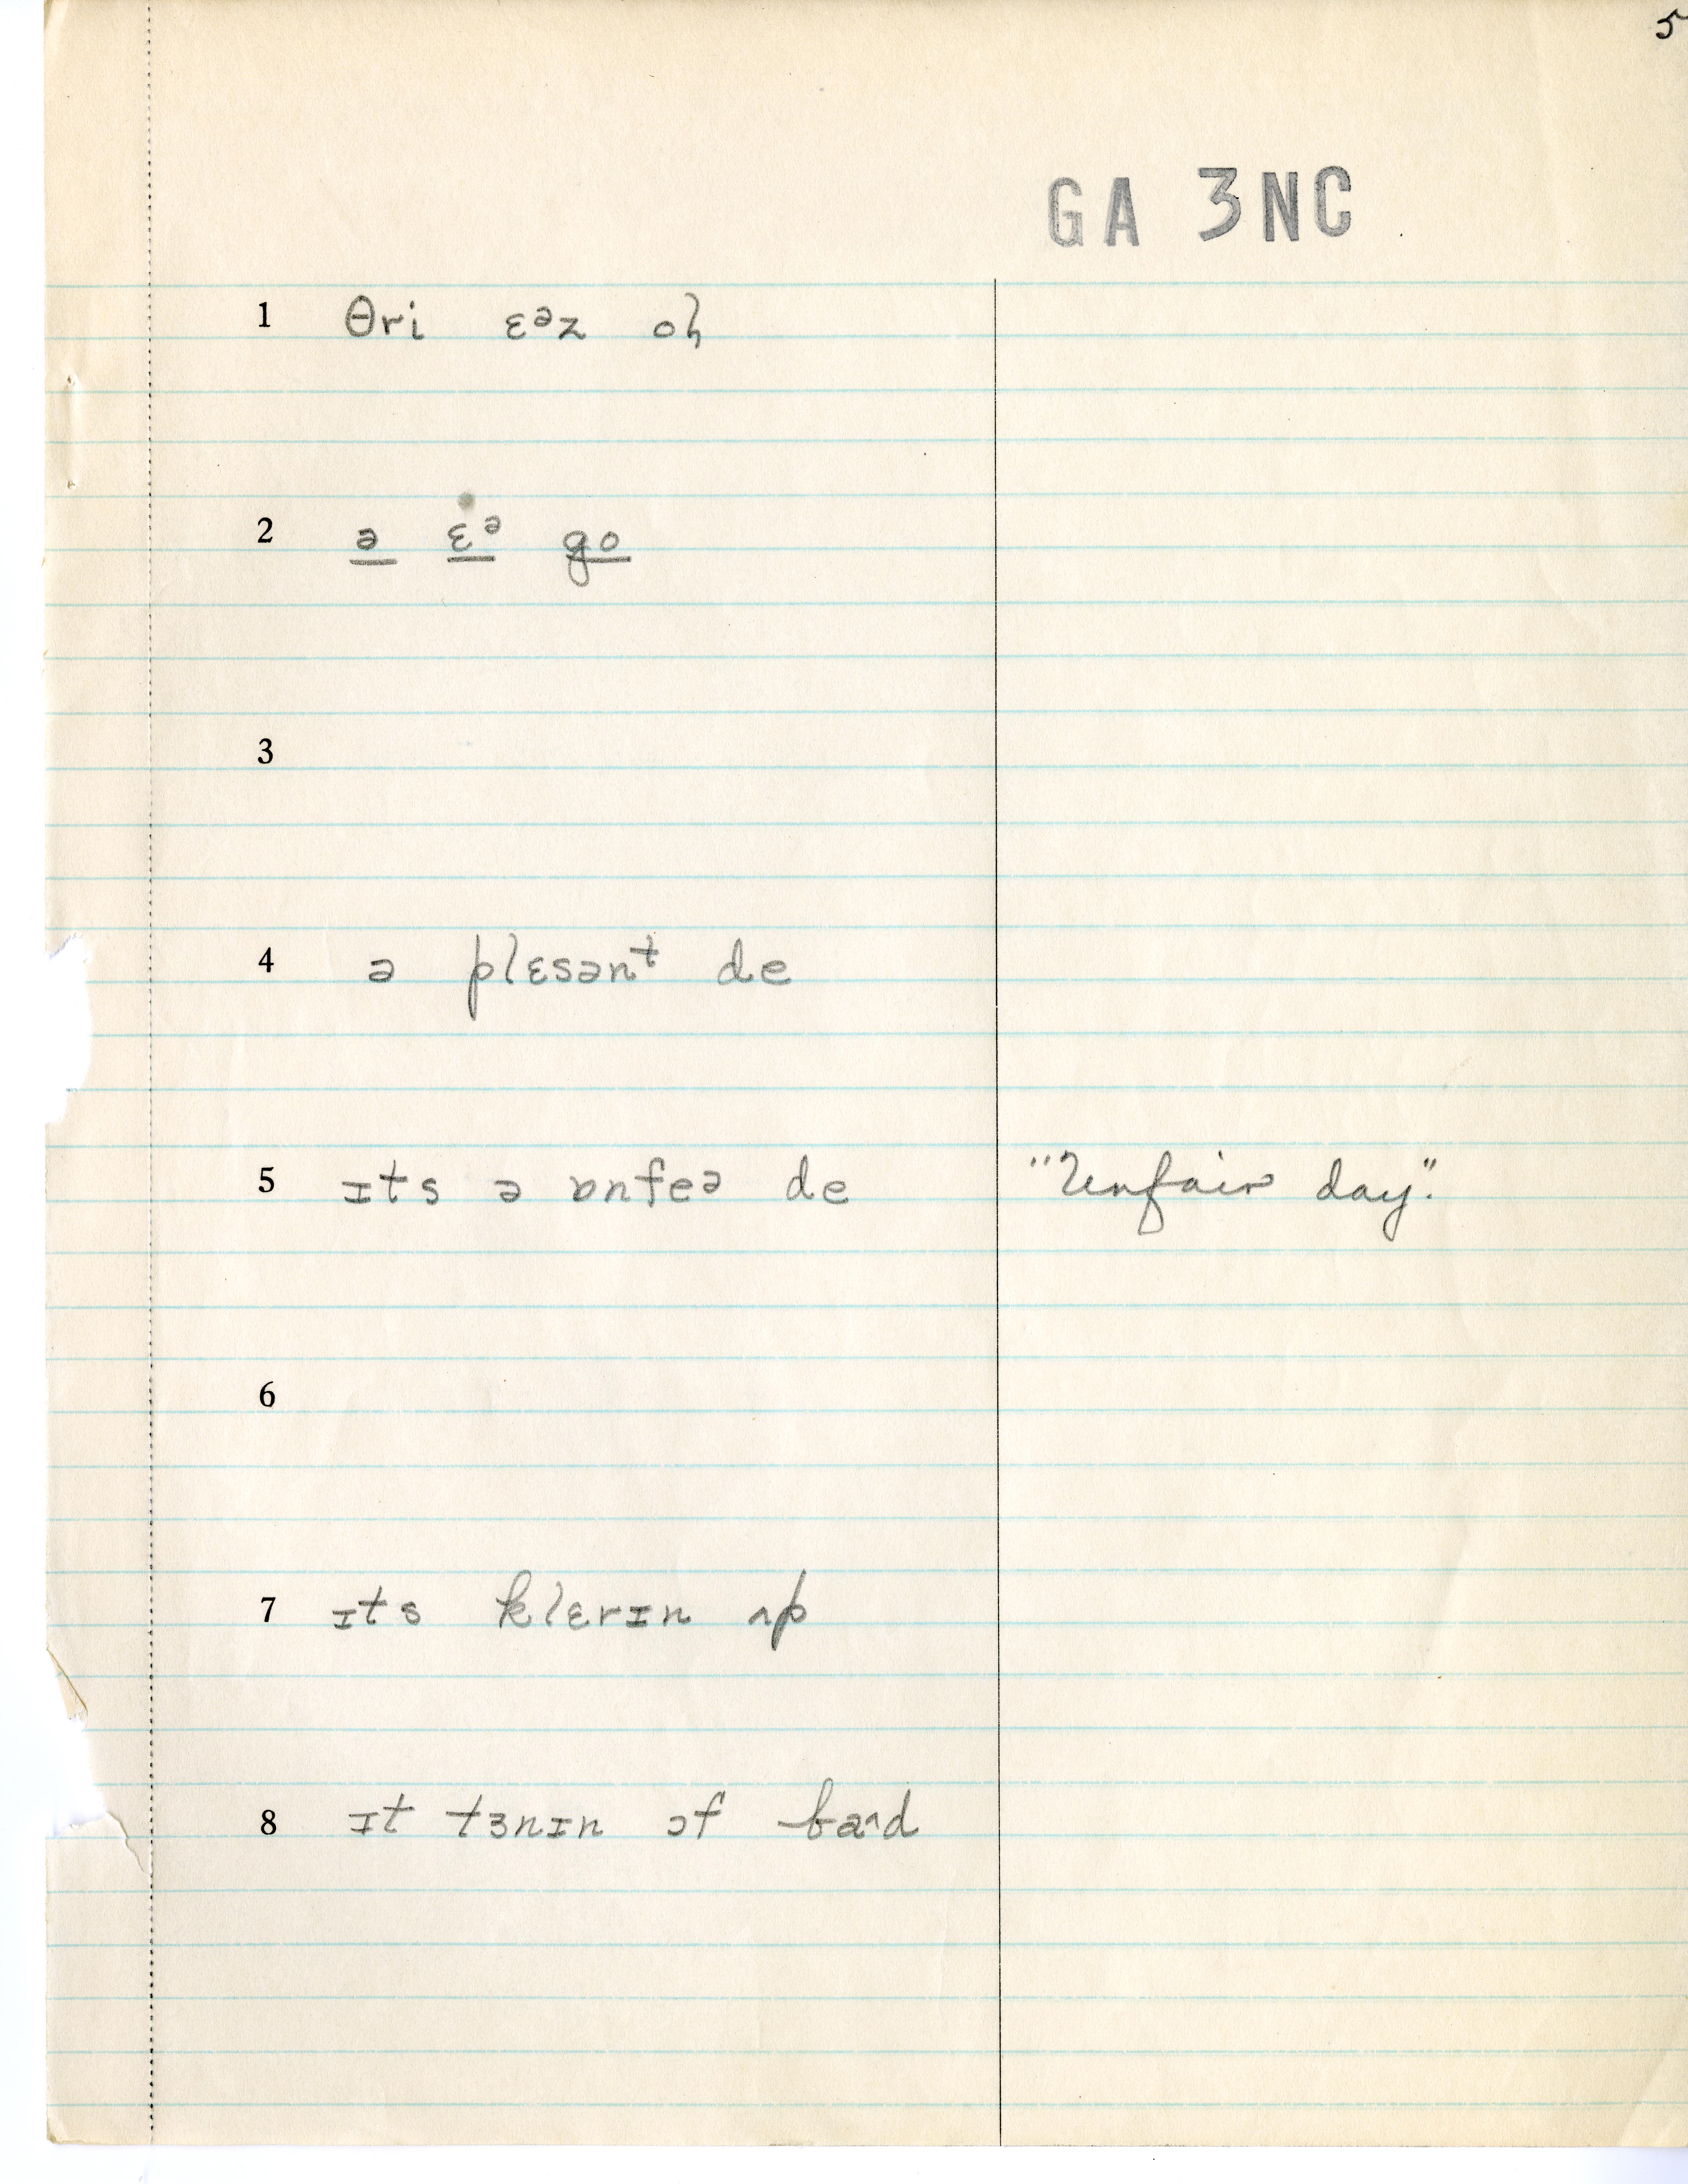 5
GA 3NC
1 θri ɛᵊz oɫ
2 ə ɛᵊ go
3
4 ə plɛsənᵗ de
5 ɪts ə ɒnfeə de "Unfair day."
6
7 ɪts klɛrɪn ʌp
8 ɪt tɜnɪn ɔf baʌd